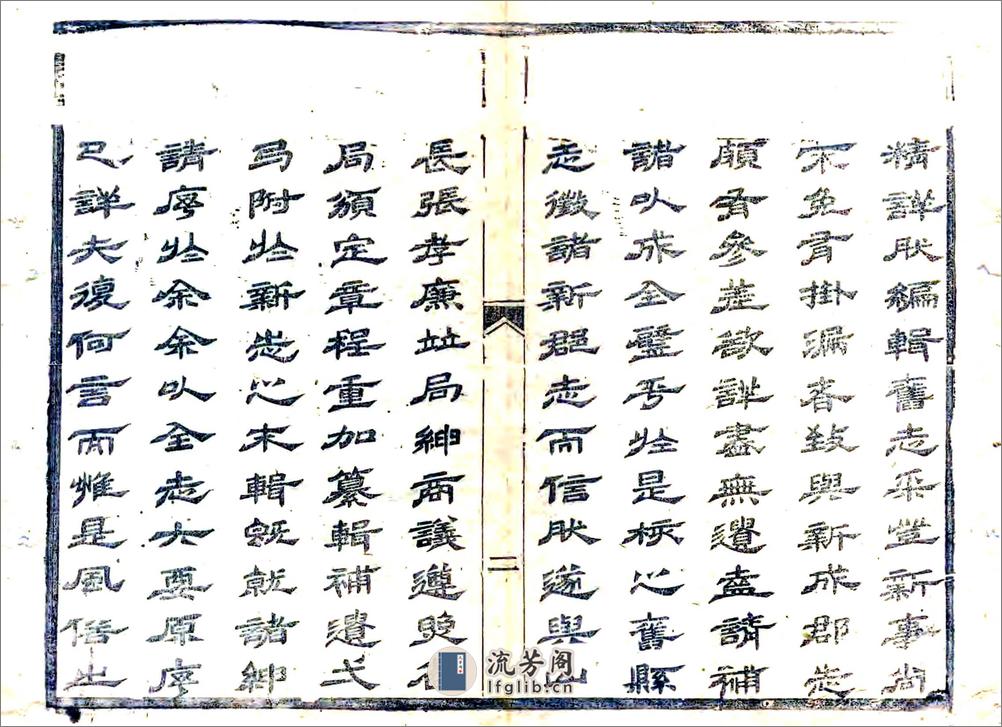 精詳肰編輯舊志采登新事尚
不免有掛漏者致與新成郡志
頗有參差欲詳盡無遺盍請補
諸以成全璧乎於是核之舊縣
志徵諸新郡志而信肰遂與山
長張孝廉竝局紳商議遵照
二
局頒定章程重加纂輯補遺弌
弓附於新志之末輯既就諸紳
請序於余余以全志大要原序
已詳夫復何言而惟是風俗之
流芳阁
lfglib.cn